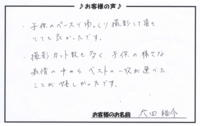 ◆お客様の声◆
・子供のペースでゆっくり撮影して頂き
とても良かったです。
・撮影カット数も多く、子供の様々な
表情の中から ベストの一枚が選べた
ことが 嬉しかったです。
お客様のお名前 太田